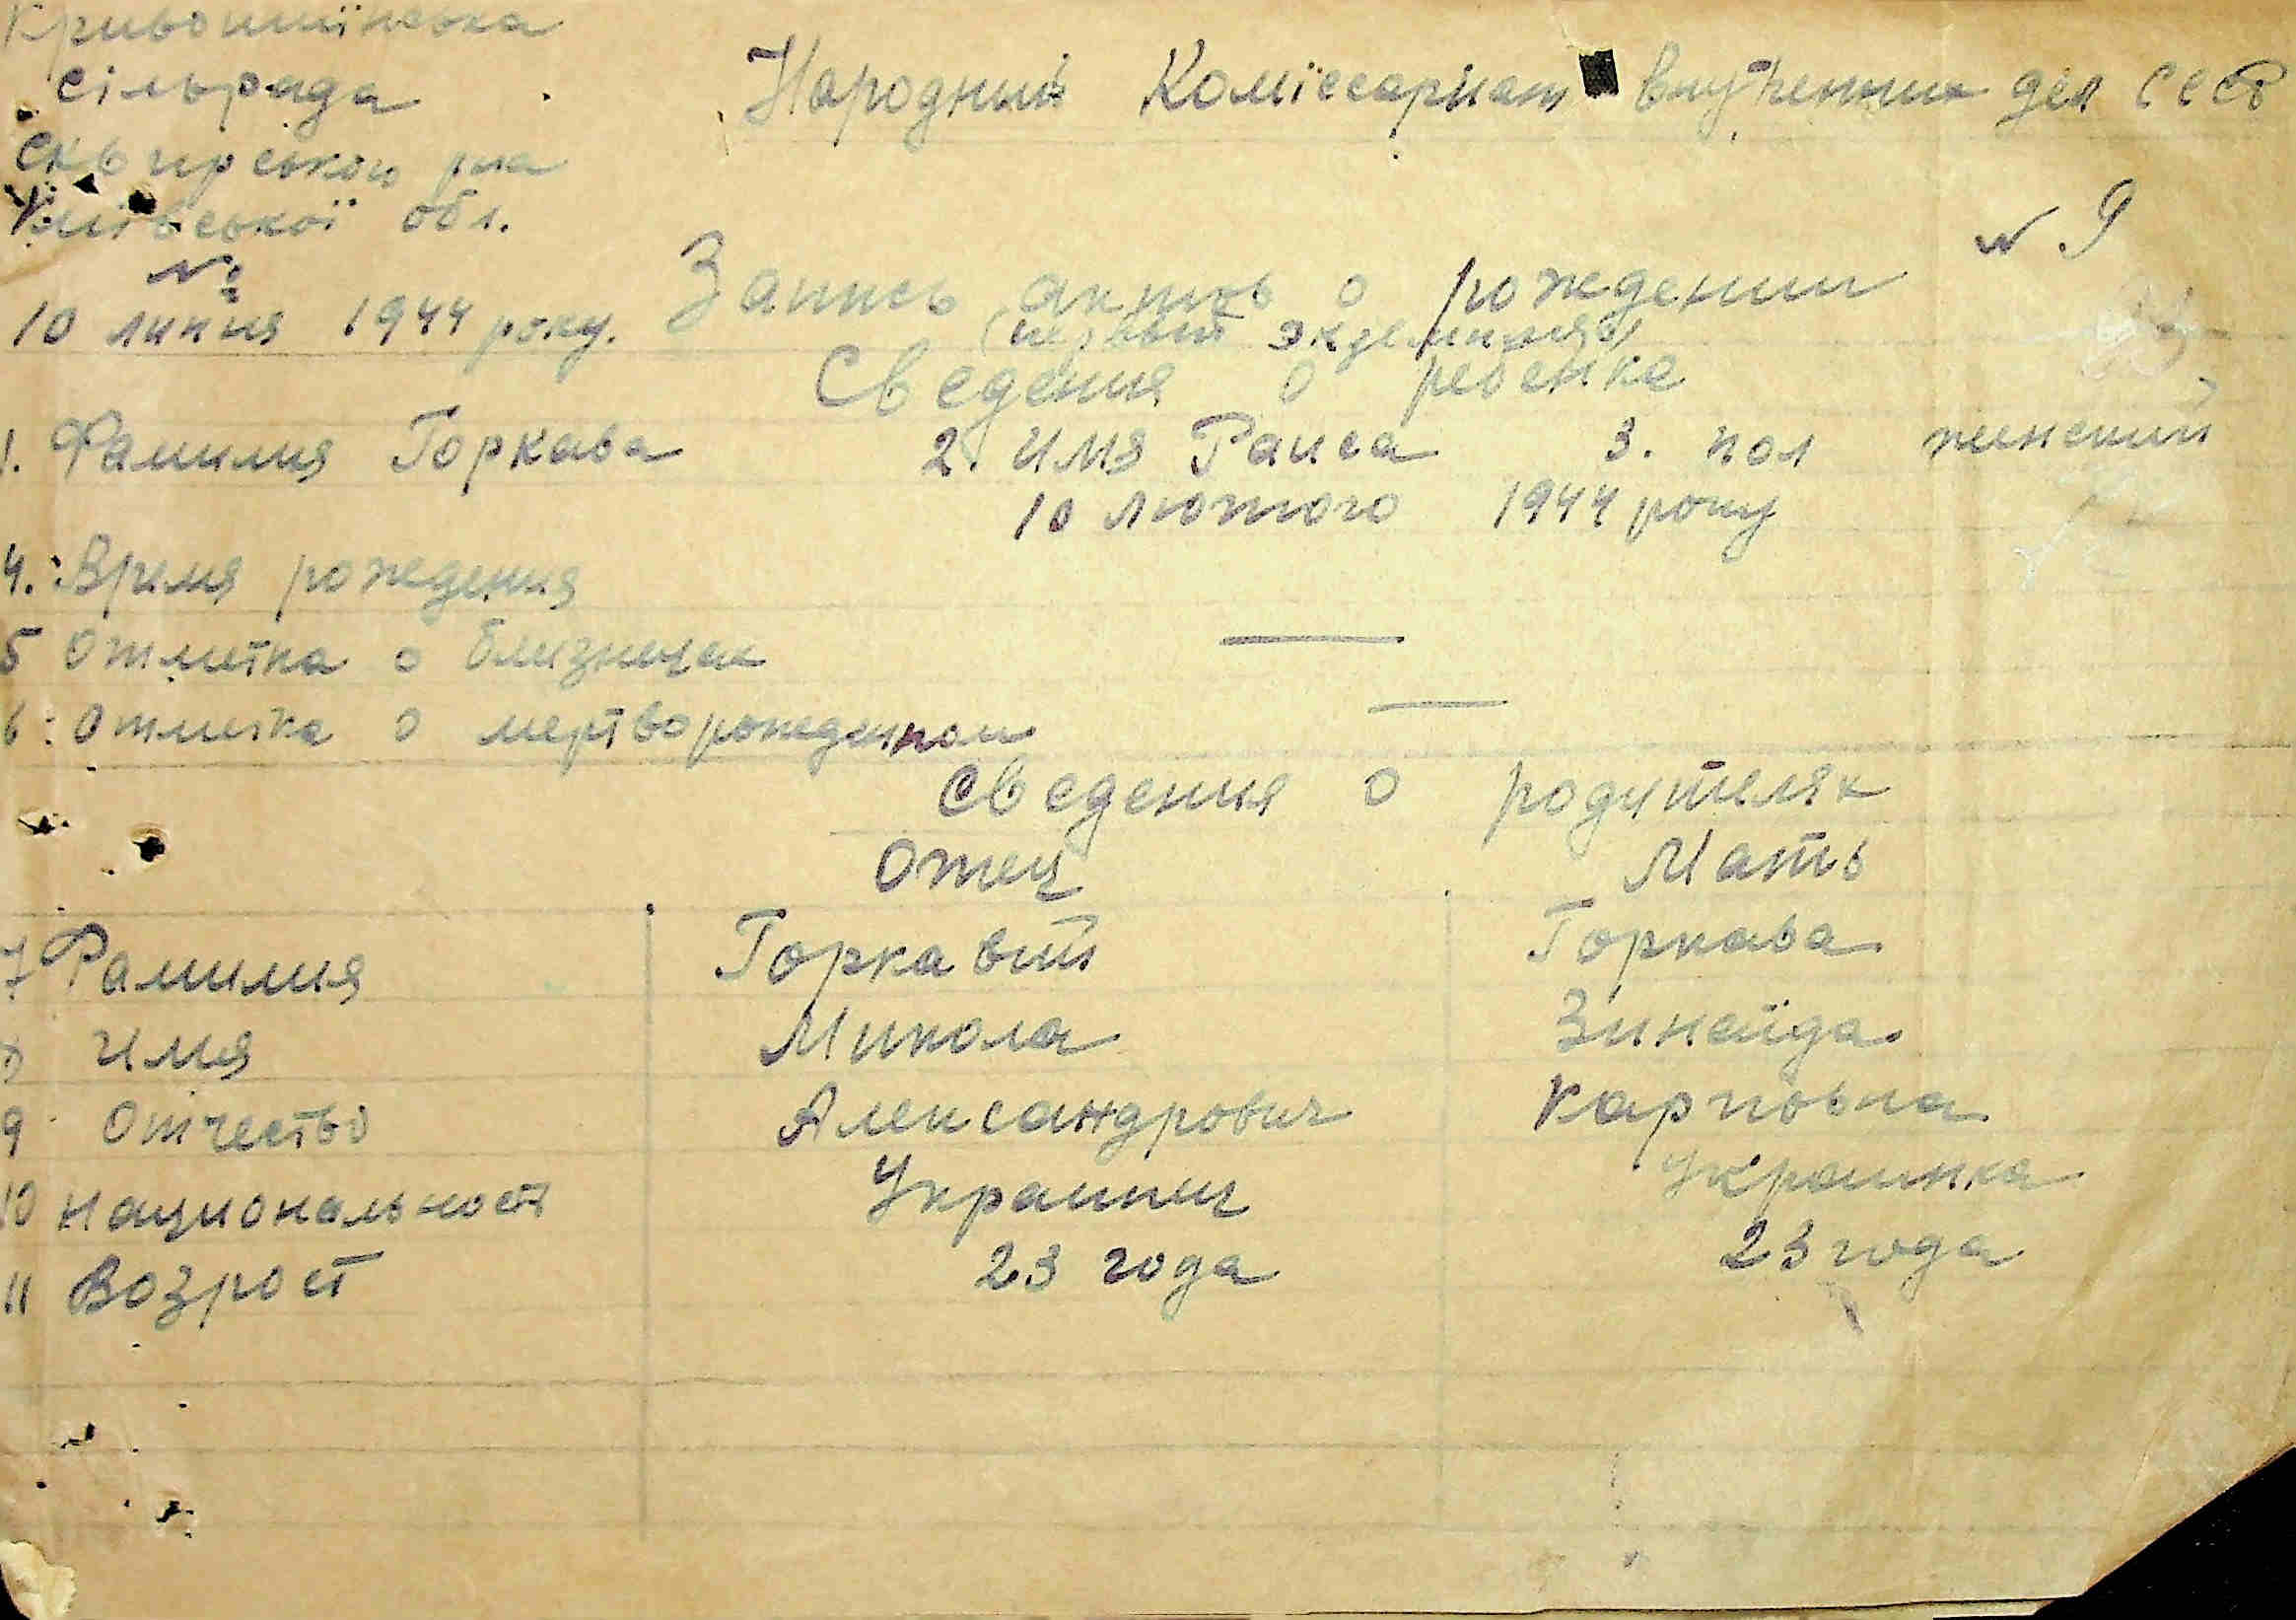 Кривошиїнська
сільрада
Сквирською р-на
Київської обл.
№
10 липня 1944 року.
Народний Комїссариат Внутренних дел СССР
N 9
Запись актов о рождении
(первый экземпляр)
Сведения о ребенке
1. Фамилия Горкава 2. Имя Раиса 3. пол женский
10 лютого 1944 року
4. Время рождения
5 Отметка о близнецах —
6. Отметка о мертворожденном —
Сведения о родителях
Отец Мать
7 Фамилия Горкавий Горкава
8 Имя Микола Зинаїда
9 Отчество Александрович Карповна
10 Национальност Украинец Украинка
11 Возрост 23 года 23 года